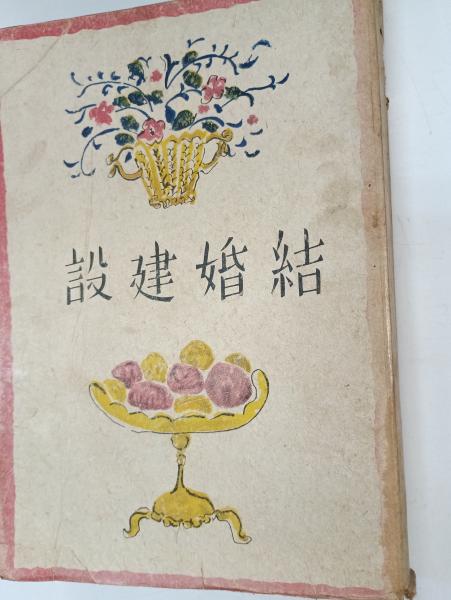 結婚建設